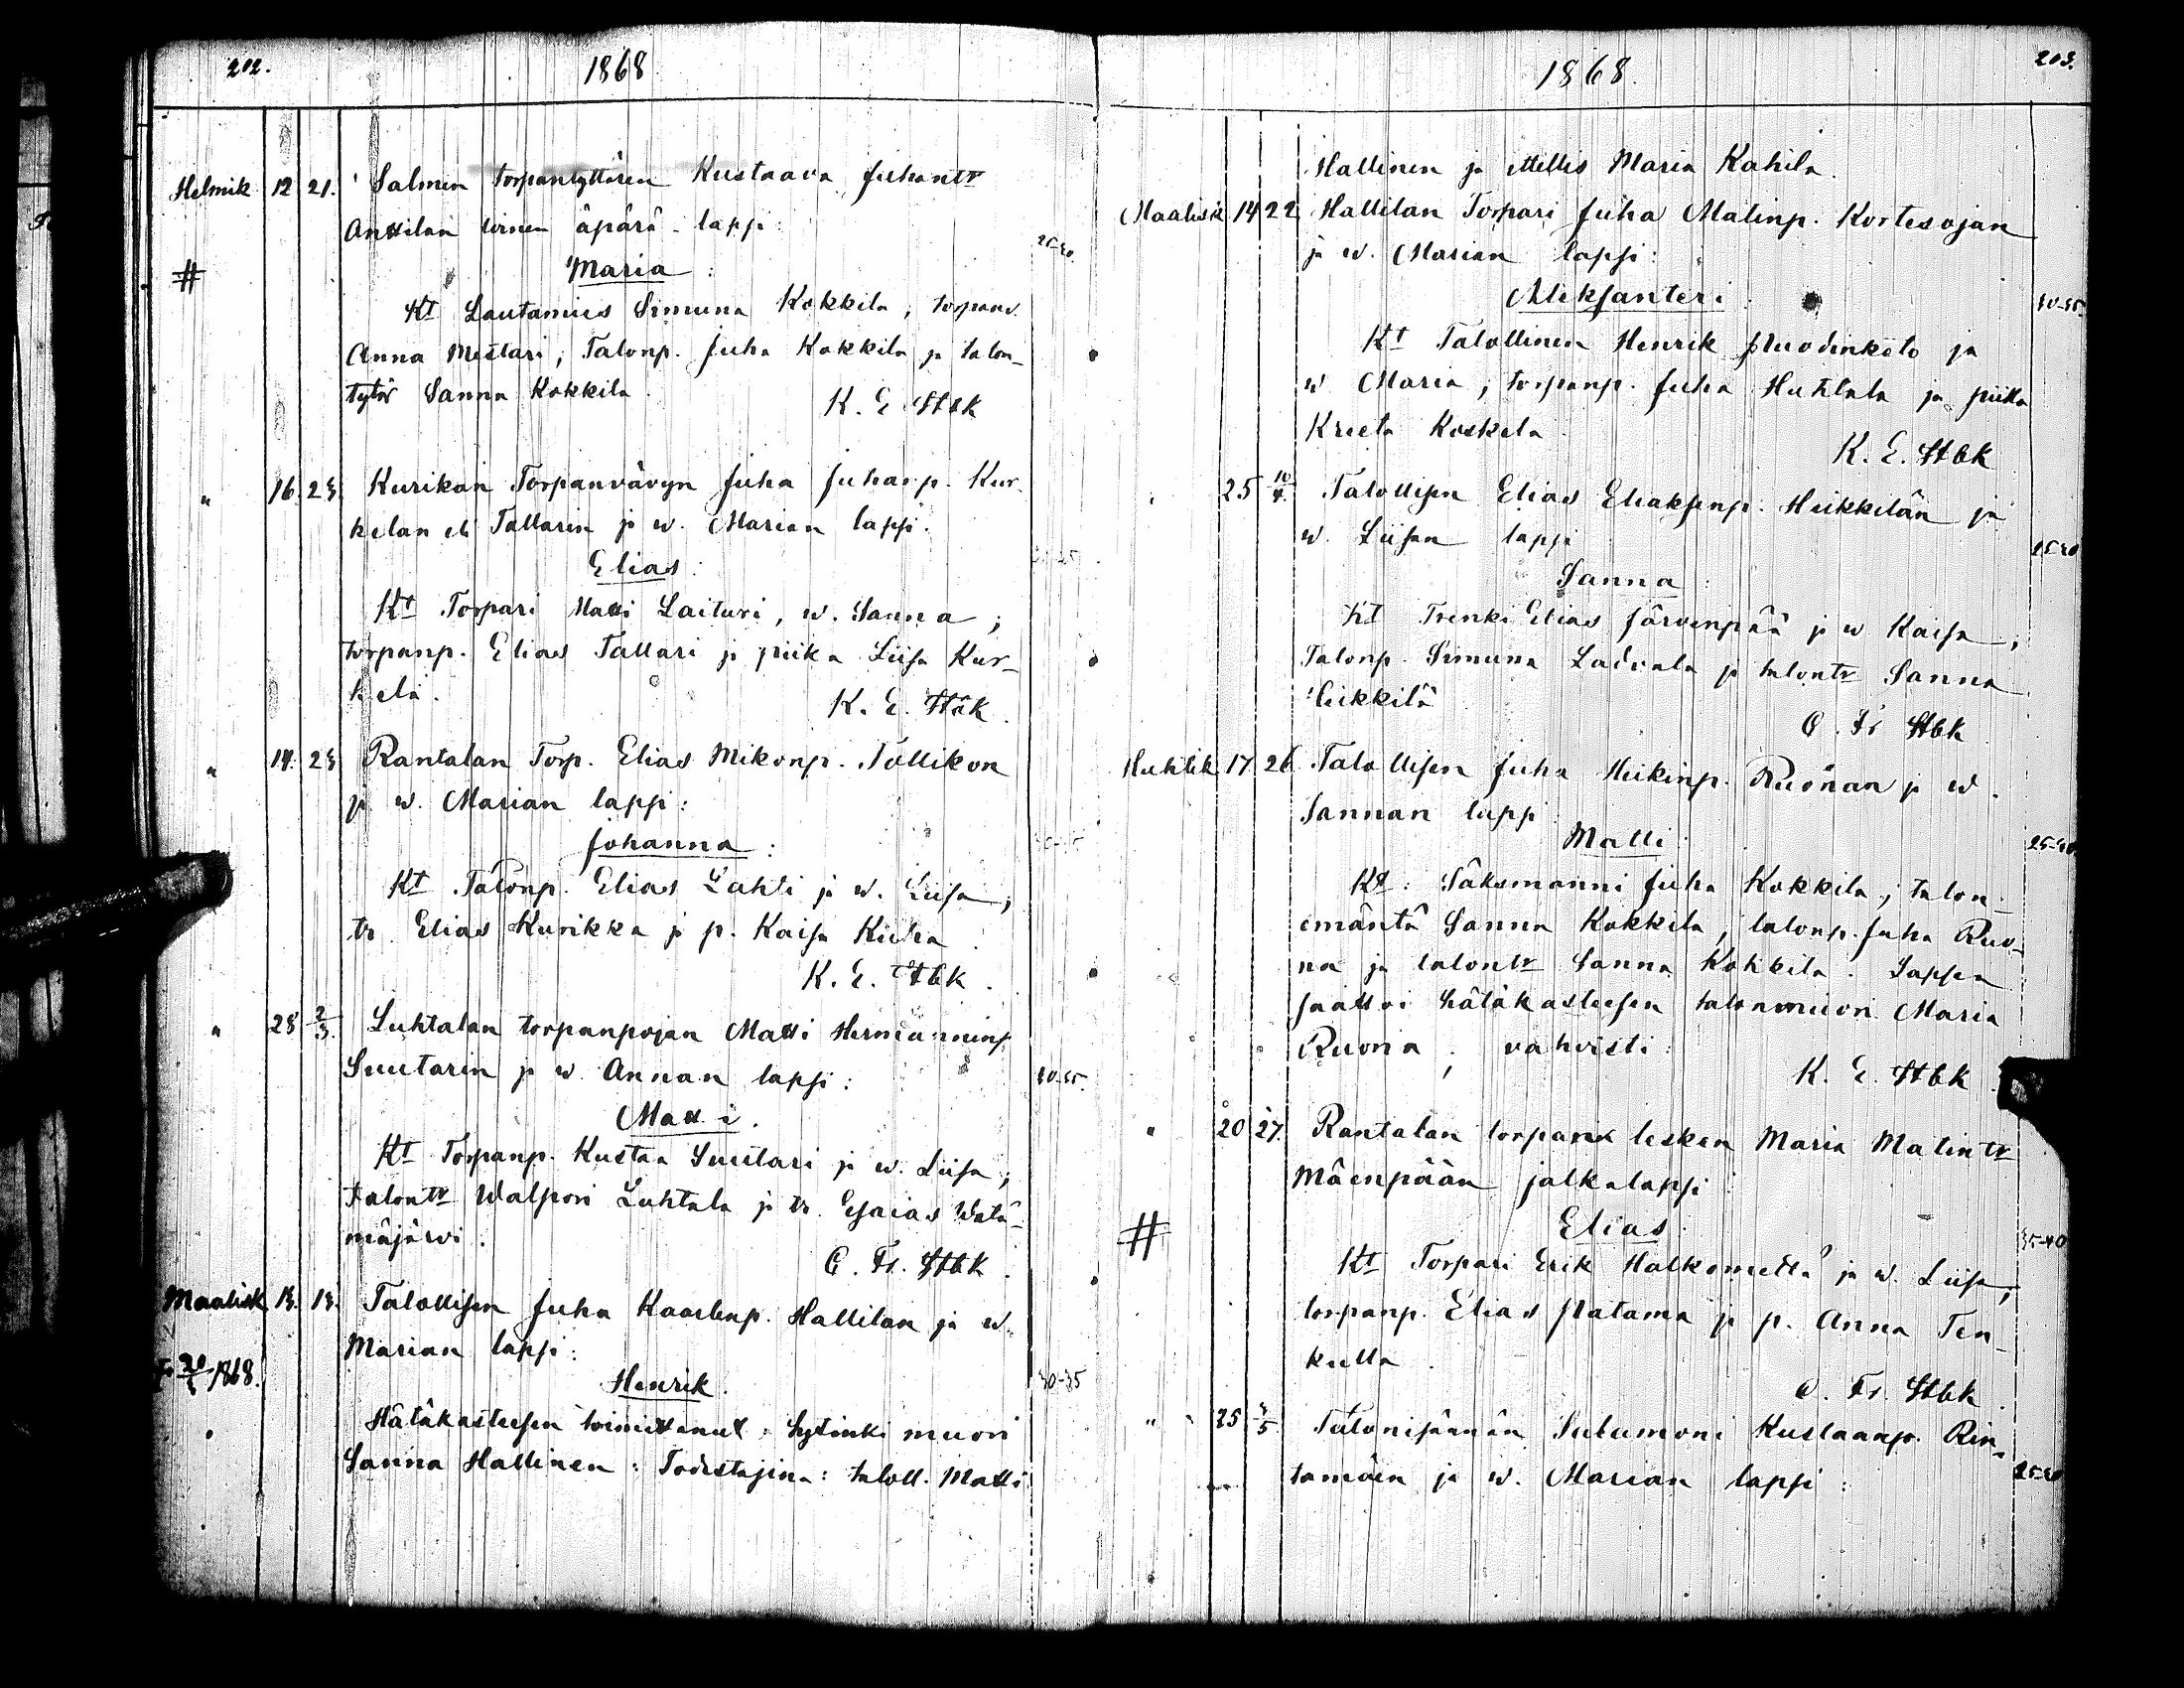 202.
1868
Helmik 12 21. Salmen torpantyttären Kustaava Juhantr
Anttilan toinen äpärä-lapsi:
25-30.
# Maria:
Kt Lautamies Simuna Kokkila; torpanv.
Anna Mestari; Talonp. Juha Kokkila ja talon-
tytär Sanna Kokkila.
K. E. Stbk
" 16. 23. Kurikan Torpanvävyn Juha Juhanp. Kur-
kelan eli Tallarin ja w. Marian lapsi:
Elias:
Kt Torpari Matti Laituri, w. Sanna;
torpanp. Elias Tallari ja piika Liisa Kur-
kela.
K. E. Stbk.
" 14. 23 Rantalan Torp. Elias Mikonp. Tollikon
ja w. Marian lapsi:
Johanna:
Kt Talonp. Elias Lahti ja w. Liisa;
tr. Elias Kurikka ja p. Kaisa
K. E. Stbk.
" 28 2/3. Luhtalan torpanpojan Matti Hermanninp.
Suutarin ja w. Annan lapsi:
30-35.
Matti.
Kt Torpanp. Kustaa Suutari ja w. Liisa;
talontr Walpori Luhtala ja tr. Esaias Wätä-
mäjärvi.
C. Fr. Stbk.
Maalisk 13. 13. Talollisen Juha Kaarlenp. Hallilan ja w.
Marian lapsi:
1868. Henrik.
30-35
Hätäkasteesen toimittanut: hytinki muori
Sanna Hallinen: Todistajina: taloll. Matti
203.
1868.
Hallinen ja Maria Kahila.
Maalisk 14 22 Hallilan Torpari Juha Matinp. Kortesojan
ja w. Marian lapsi:
Aleksanteri:
30-35
Kt Talollinen Henrik Puodinketo ja
w Maria; torpanp. Juha Huhtala ja piika
Kreeta Koskela.
K. E. Stbk
25 10/4. Talollisen Elias Eliaksenp. Heikkilän ja
w. Liisan lapsi
25-30
Sanna:
Kt Trenki Elias Järvenpää ja w Kaisa;
Talonp. Simuna Ladvala ja talontr Sanna
Heikkilä
C. Fr Stbk
Huhtik 17 26 Talollisen Juha Heikinp. Ruonan ja w.
Sannan lapsi
Matti:
Kt: Säksmanni Juha Kokkila; talon-
emäntä Sanna Kokkila; talonp. Juha Ruo-
na ja talontr Sanna Kokkila. Lapsen
saattoi hätäkasteesen talonmuori Maria
Ruona; vahvisti:
K. E. Stbk.
" 20 27. Rantalan torparin lesken Maria Matintr
Mäenpään jalkalapsi:
# Elias:
35-40
Kt Torpari Erik Halkometsä ja w. Liisa;
torpanp. Elias Patama ja p. Anna Ten-
kulla.
C. Fr. Stbk.
" 25 3/5. Talonisännän Salomoni Kustaanp. Rin-
tamäen ja w. Marian lapsi: